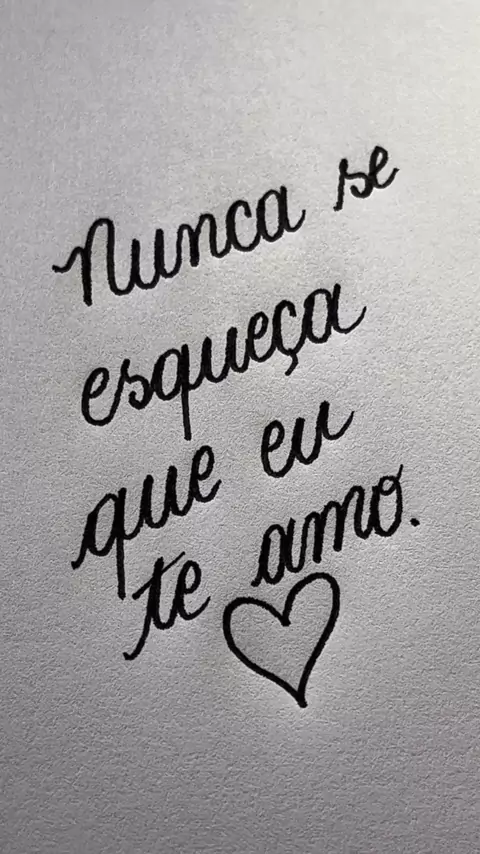 Nunca se
esqueça
que eu
te amo.